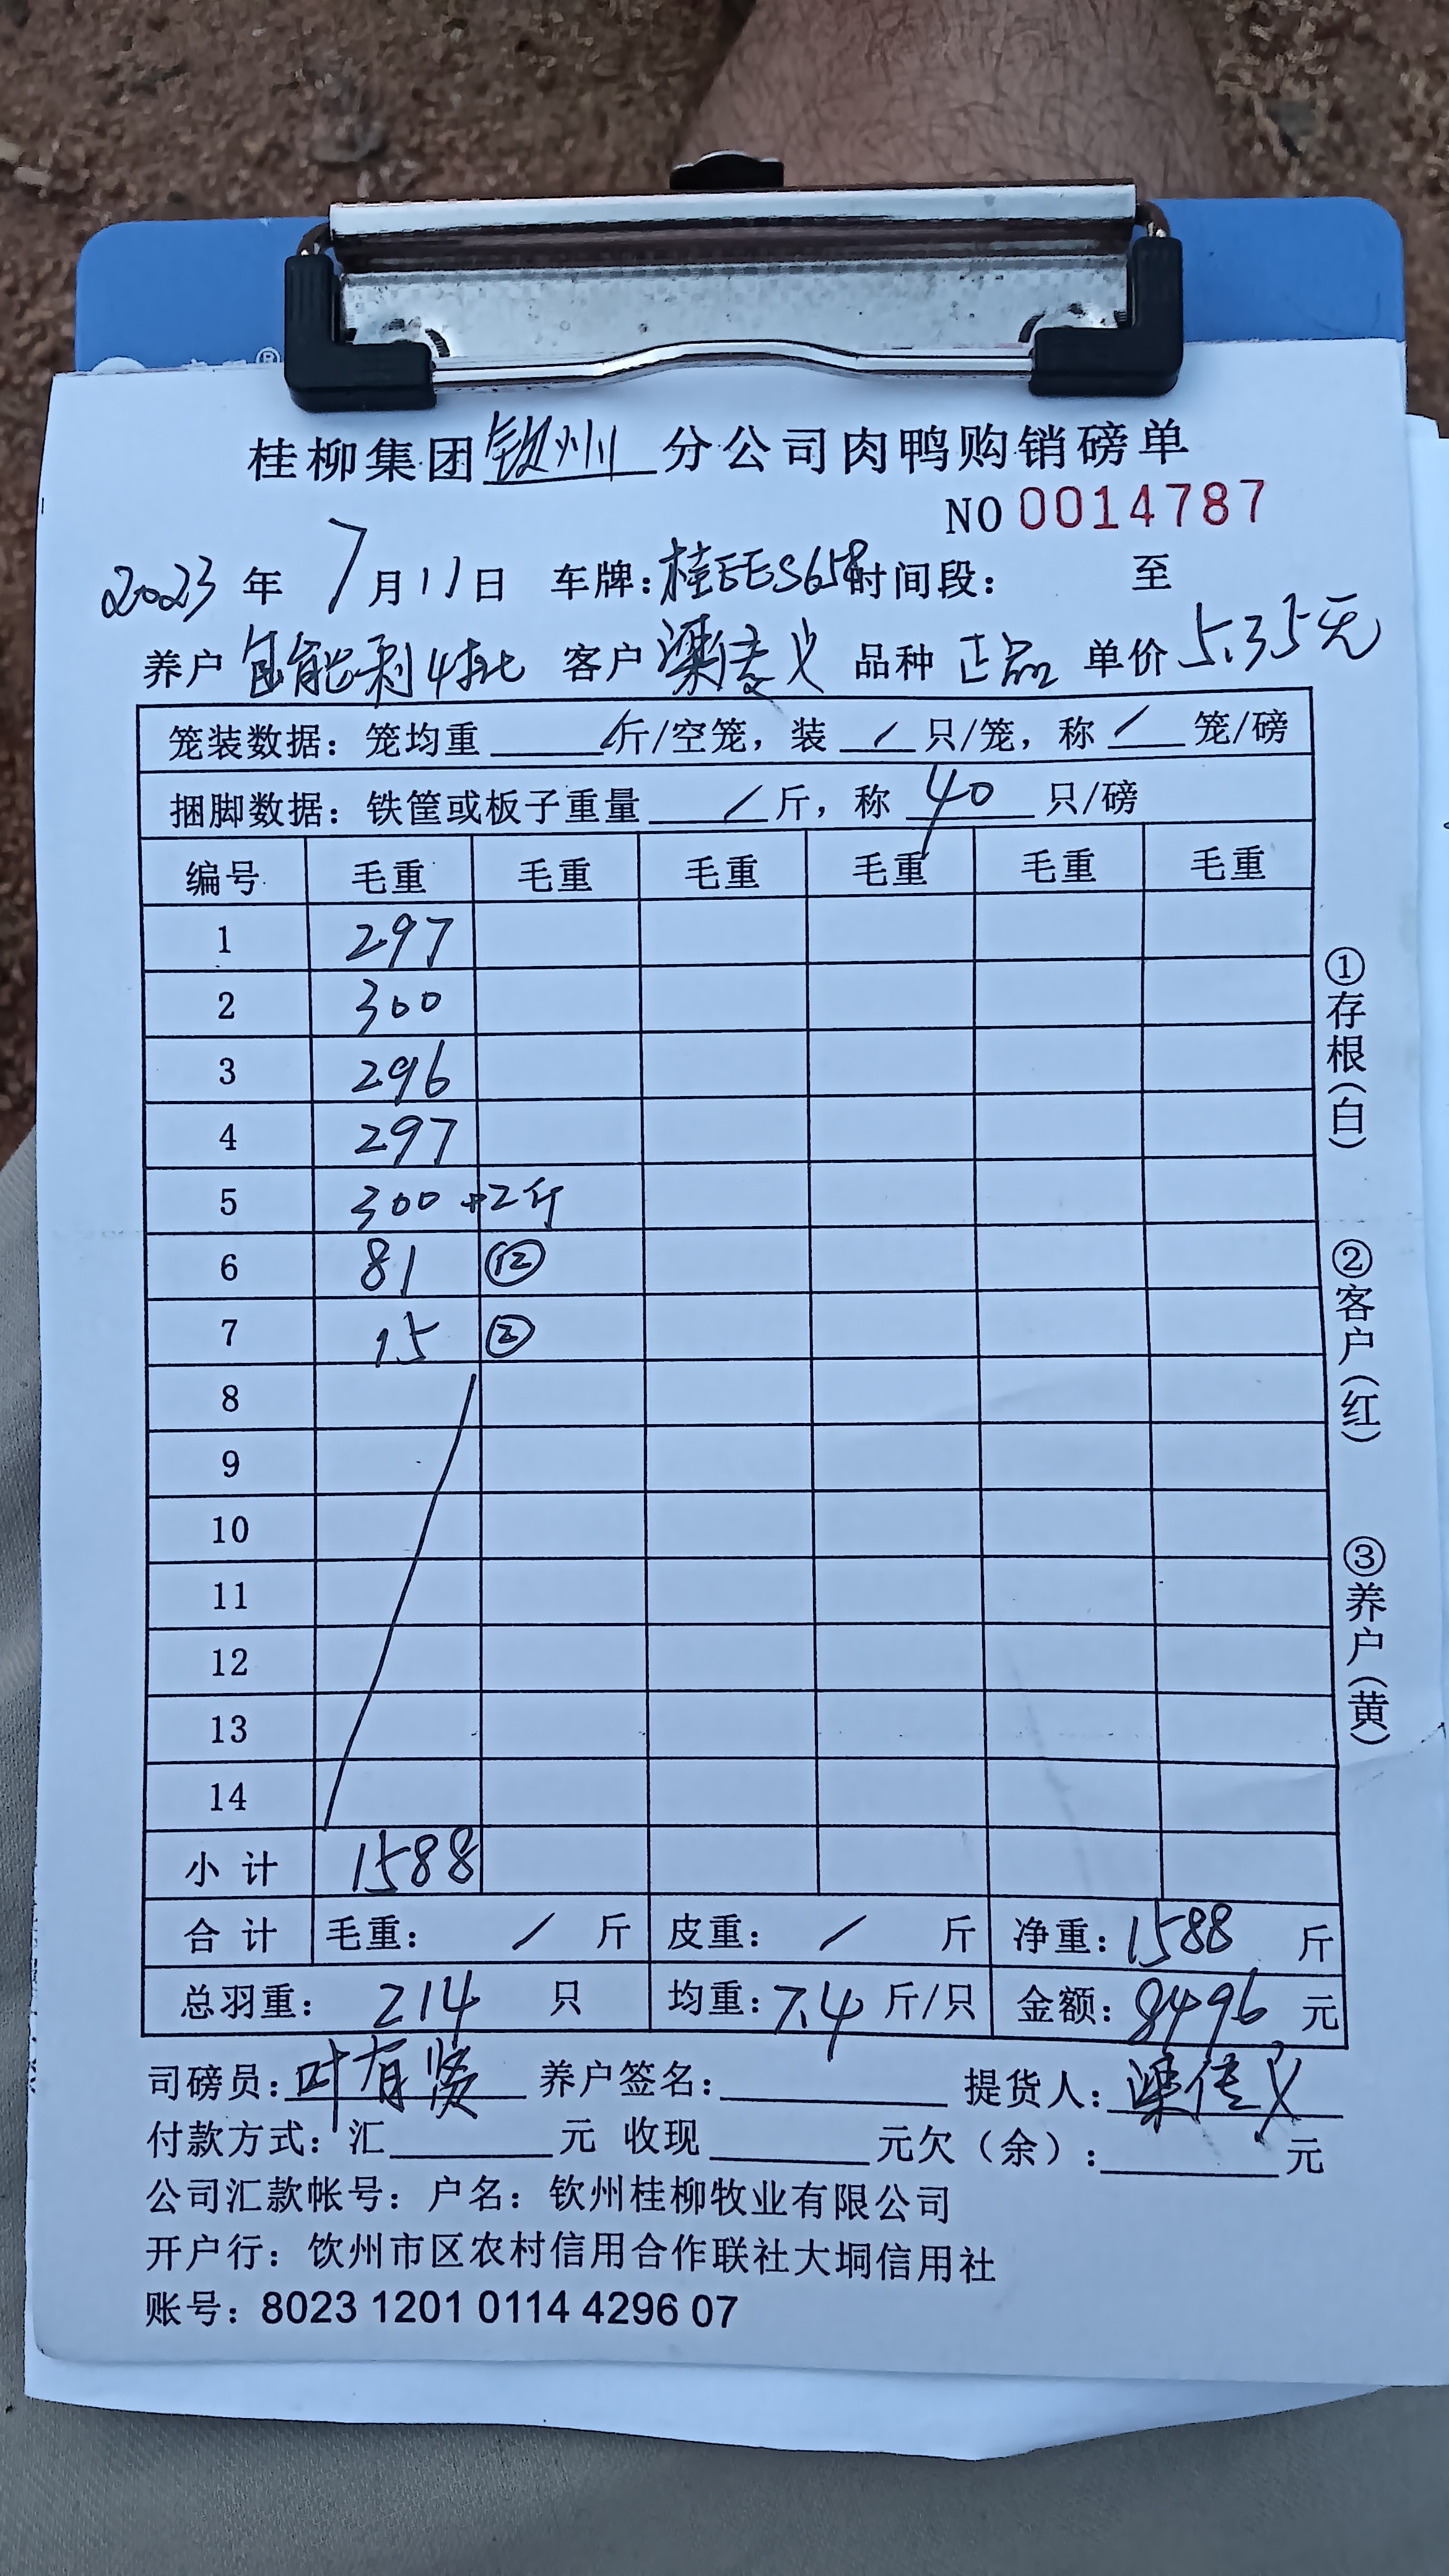 桂柳集团钦州分公司肉鸭购销磅单
NO 0014787
2023年7月11日 车牌:桂EES658时间段: 至
养户 能利4批 客户 梁传义 品种 正品 单价 5.35元
笼装数据:笼均重 / 斤/空笼,装 / 只/笼,称 / 笼/磅
捆脚数据:铁筐或板子重量 / 斤,称 40 只/磅
编号 毛重 毛重 毛重 毛重 毛重 毛重
1 297
2 300
3 296
4 297
5 300 +2斤
6 81 ⑫
7 15 ②
8
9
10
11
12
13
14
小计 1588
合计 毛重: / 斤 皮重: / 斤 净重:1588 斤
总羽重: 214 只 均重:7.4 斤/只 金额:8496 元
司磅员:叶有贤 养户签名: 提货人:梁传义
付款方式:汇 元 收现 元欠(余): 元
公司汇款帐号:户名:钦州桂柳牧业有限公司
开户行:钦州市区农村信用合作联社大垌信用社
账号:8023 1201 0114 4296 07
①存根(白)
②客户(红)
③养户(黄)